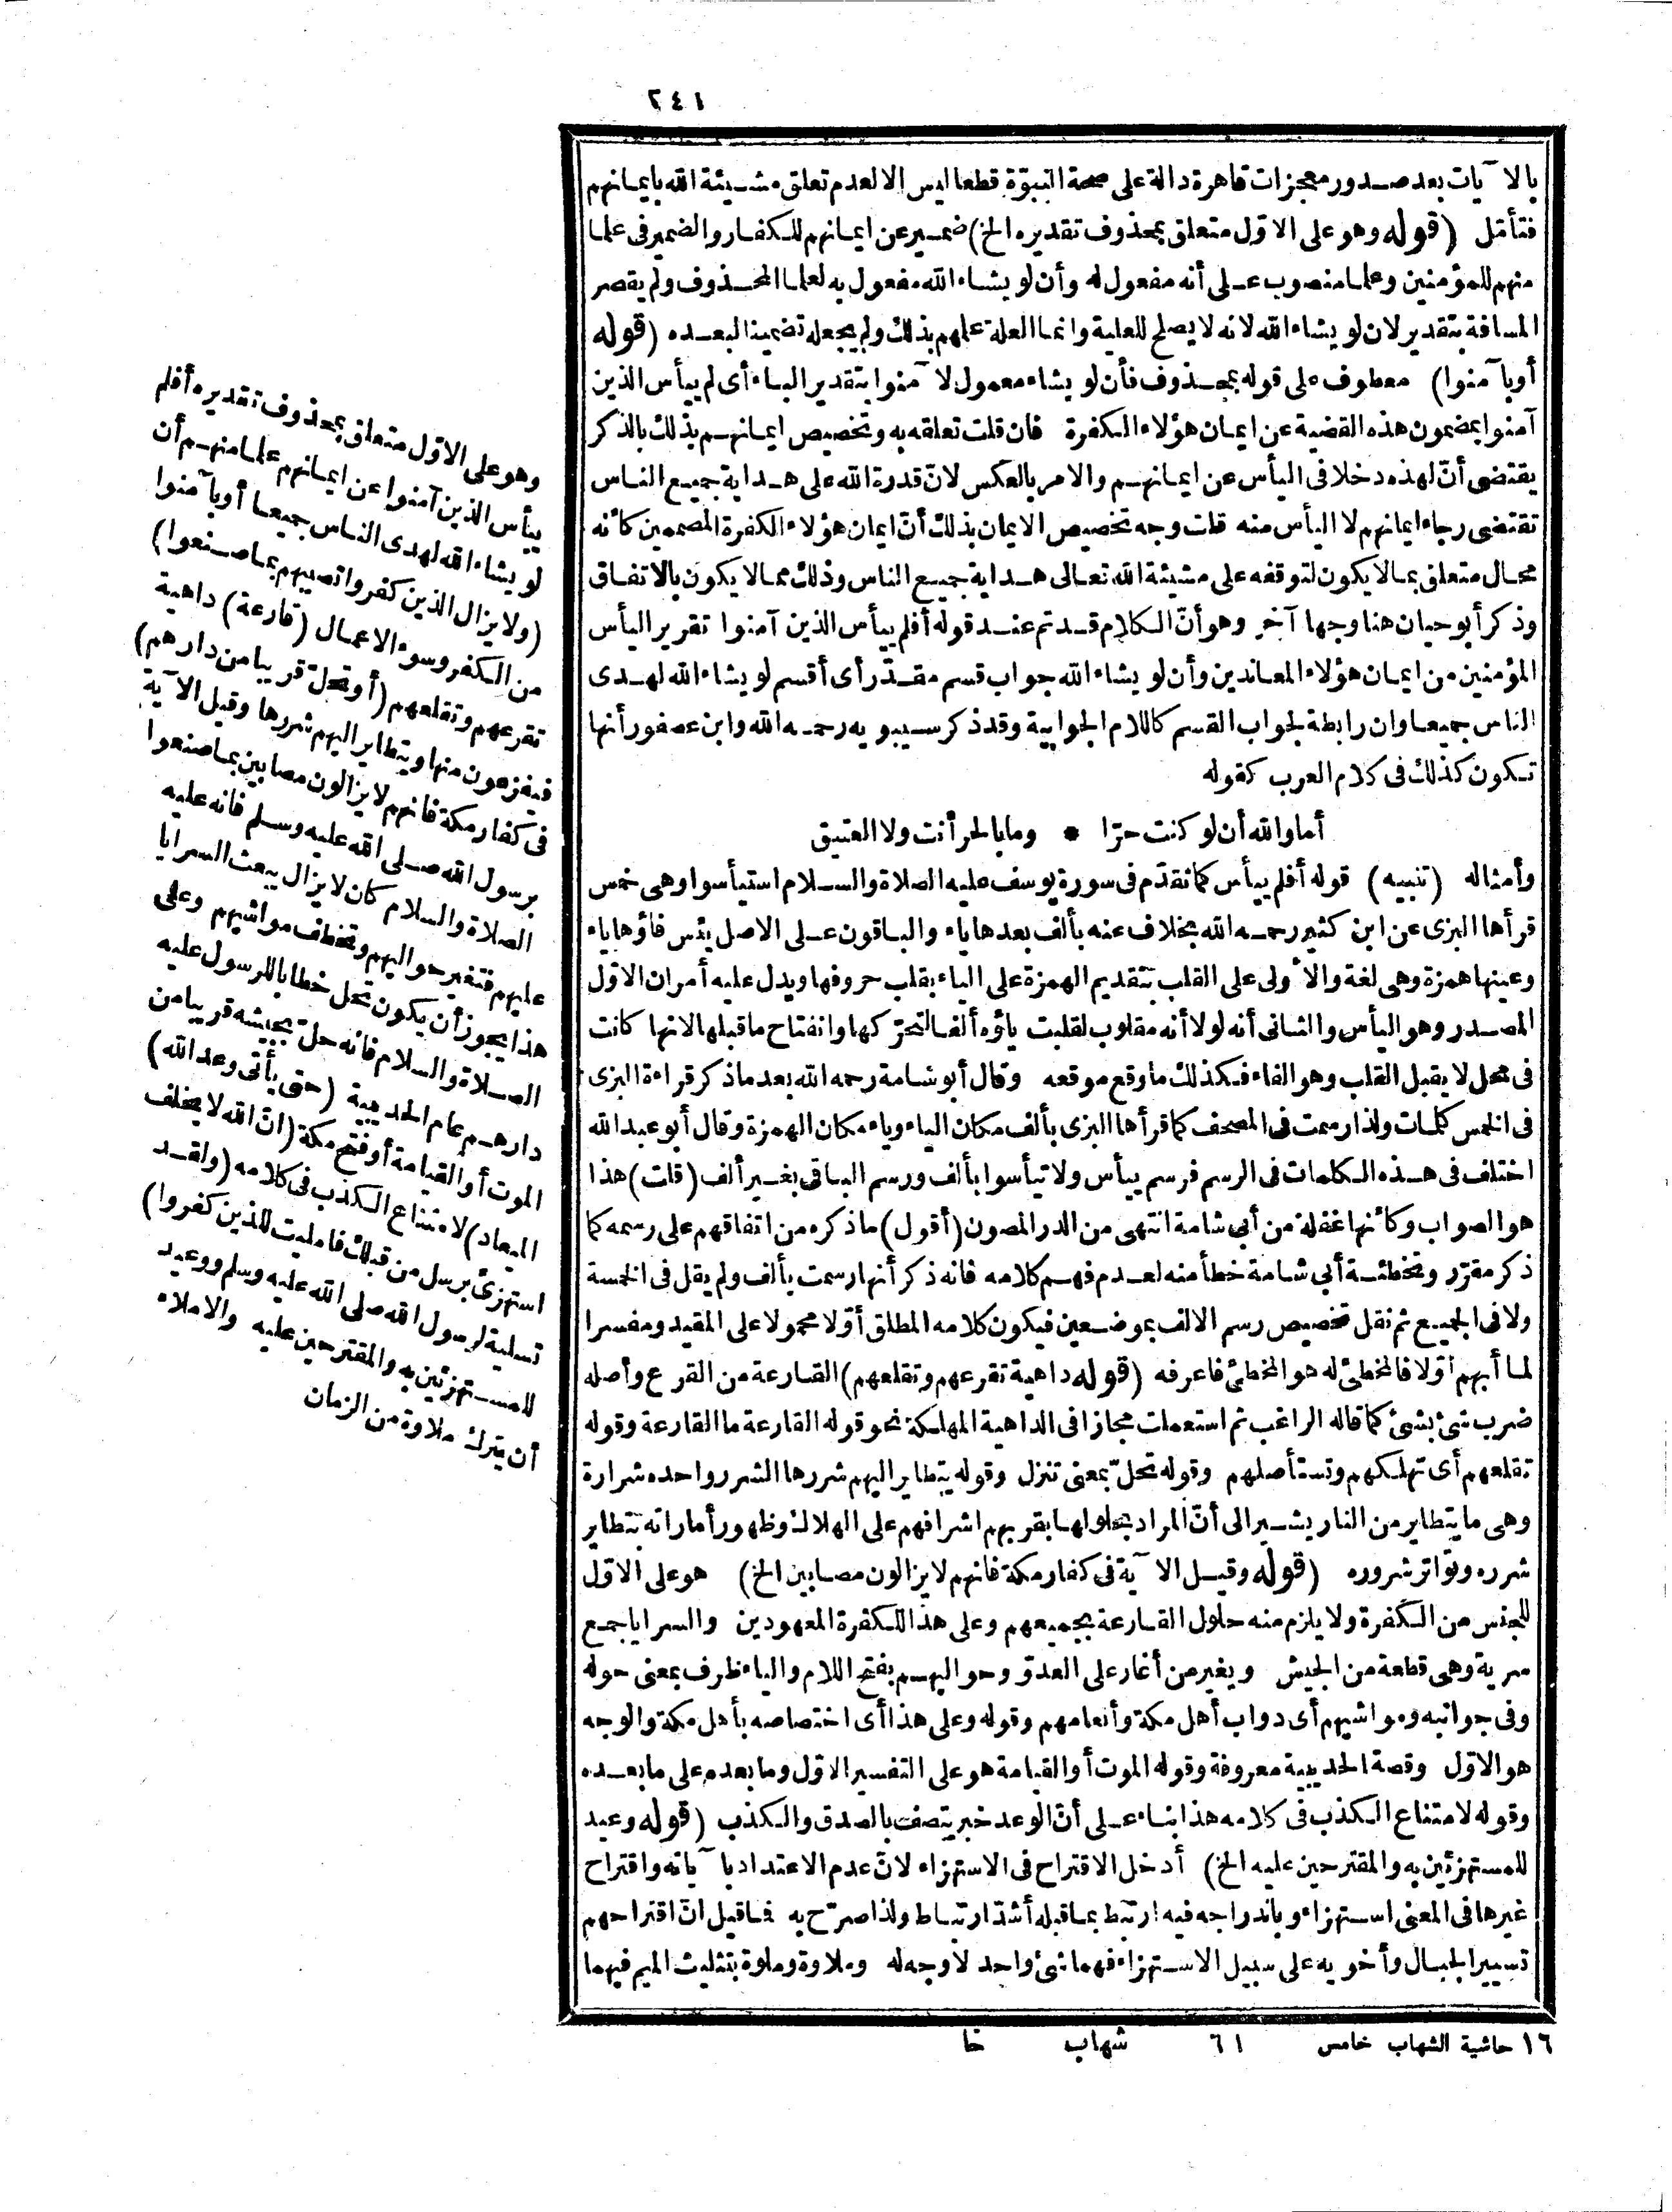 ٢٤١
بالآيات بعد صدور معجزات قاهرة دالة على صحة النبوّة قطعا ليس الا لعدم تعلق مشيئة الله بايمانهم
فتأمّل (قوله وهو على الاوّل متعلق بمحذوف تقديره الخ) ضمير عن ايمانهم للكفار والضمير في علما
منهم للمؤمنين وعلما منصوب على أنه مفعول له وأن لو يشاء الله مفعول به لعلما المحذوف ولم يقصر
المسافة بتقدير لان لو يشاء الله لانه لا يصلح للعلية وانما العلة علمهم بذلك ولم يجعله تضمينا لبعده (قوله
أوبآمنوا) معطوف على قوله بمحذوف فأن لو يشاء معمول لآمنوا بتقدير الباء أى لم ييأس الذين
آمنوا بمضمون هذه القضية عن ايمان هؤلاء الكفرة فان قلت تعلقه به وتخصيص ايمانهم بذلك بالذكر
يقتضى أنّ لهذه دخلا في اليأس عن ايمانهم والامر بالعكس لانّ قدرة الله على هداية جميع الناس
تقتضى رجاء ايمانهم لا اليأس منه قلت وجه تخصيص الايمان بذلك أنّ ايمان هؤلاء الكفرة المصممين كأنه
محال متعلق بما لا يكون لتوقفه على مشيئة الله تعالى هداية جميع الناس وذلك مما لا يكون بالاتفاق
وذكر أبو حيان هنا وجها آخر وهو أنّ الكلام قد تم عند قوله أفلم ييأس الذين آمنوا تقرير اليأس
المؤمنين من ايمان هؤلاء المعاندين وأن لو يشاء الله جواب قسم مقدّر أى أقسم لو يشاء الله لهدى
الناس جميعا وان رابطة لجواب القسم كاللام الجوابية وقد ذكر سيبويه رحمه الله وابن عصفور أنها
تكون كذلك في كلام العرب كقوله
أما والله أن لو كنت حرّا * وما بالحر أنت ولا العتيق
وأمثاله (تنبيه) قوله أفلم ييأس كما تقدّم في سورة يوسف عليه الصلاة والسلام استيأسوا وهى خمس
قرأها البزى عن ابن كثير رحمه الله بخلاف عنه بألف بعدها ياء والباقون على الاصل يئس فاؤها ياء
وعينها همزة وهى لغة والأولى على القلب بتقديم الهمزة على الياء بقلب حروفها ويدل عليه أمران الاوّل
المصدر وهو اليأس والثانى أنه لولا أنه مقلوب لقلبت ياؤه ألفا لتحرّكها وانفتاح ما قبلها لانها كانت
في محل لا يقبل القلب وهو الفاء فكذلك ما وقع موقعه وقال أبو شامة رحمه الله بعد ماذكر قراءة البزى
في الخمس كلمات ولذا رسمت في المصحف كما قرأها البزى بألف مكان الياء وياء مكان الهمزة وقال أبو عبد الله
اختلف في هذه الكلمات في الرسم فرسم ييأس ولا تيأسوا بألف ورسم الباقى بغير ألف (قلت) هذا
هو الصواب وكأنها غفلة من أبى شامة انتهى من الدر المصون (أقول) ما ذكره من اتفاقهم على رسمه كما
ذكر مقرّر وتخطئة أبى شامة خطأ منه لعدم فهم كلامه فانه ذكر أنها رسمت بألف ولم يقل في الخمسة
ولا في الجميع ثم نقل تخصيص رسم الالف بموضعين فيكون كلامه المطلق أوّلا محمولا على المقيد ومفسرا
لما أبهم أوّلا فالمخطئ له هو المخطئ فاعرفه (قوله داهية تقرعهم وتقلعهم) القارعة من القرع وأصله
ضرب شئ بشئ كما قاله الراغب ثم استعملت مجازا في الداهية المهلكة نحو قوله القارعة ما القارعة وقوله
تقلعهم أى تهلكهم وتستأصلهم وقوله تحلّ بمعنى تنزل وقوله يتطاير اليهم شررها الشرر واحده شرارة
وهى ما يتطاير من النار يشير الى أنّ المراد بحلولها بقربهم اشرافهم على الهلاك وظهور أماراته بتطاير
شرره وتواتر شروره (قوله وقيل الآية في كفار مكة فانهم لا يزالون مصابين الخ) هو على الاوّل
للجنس من الكفرة ولا يلزم منه حلول القارعة بجميعهم وعلى هذا للكفرة المعهودين والسرايا جمع
سرية وهى قطعة من الجيش ويغير من أغار على العدوّ وحواليهم بفتح اللام والياء ظرف بمعنى حوله
وفى جوانبه ومواشيهم أى دواب أهل مكة وأنعامهم وقوله وعلى هذا أى اختصاصه بأهل مكة والوجه
هو الاوّل وقصة الحديبية معروفة وقوله الموت أو القيامة هو على التفسير الاوّل وما بعده على ما بعده
وقوله لامتناع الكذب في كلامه هذا بناء على أنّ الوعد خبر يتصف بالصدق والكذب (قوله وعيد
للمستهزئين به والمقترحين عليه الخ) أدخل الاقتراح في الاستهزاء لانّ عدم الاعتداد بآياته واقتراح
غيرها في المعنى استهزاء وباندراجه فيه ارتبط بما قبله أشدّ ارتباط ولذا صرّح به فما قيل انّ اقتراحهم
تسيير الجبال وأخويه على سبيل الاستهزاء فهما شئ واحد لا وجه له وملاوة وملوة بتثليث الميم فيهما
وهو على الاوّل متعلق بمحذوف تقديره أفلم
ييأس الذين آمنوا عن ايمانهم علما منهم أن
لو يشاء الله لهدى الناس جميعا أو بآمنوا
(ولا يزال الذين كفروا تصيبهم بما صنعوا)
من الكفر وسوء الاعمال (قارعة) داهية
تقرعهم وتقلعهم (أو تحلّ قريبا من دارهم)
فيفزعون منها ويتطاير اليهم شررها وقيل الآية
في كفار مكة فانهم لا يزالون مصابين بما صنعوا
برسول الله صلى الله عليه وسلم فانه عليه
الصلاة والسلام كان لا يزال يبعث السرايا
عليهم فتغير حواليهم وتخطف مواشيهم وعلى
هذا يجوز أن يكون تحل خطابا للرسول عليه
الصلاة والسلام فانه حلّ بجيشه قريبا من
دارهم عام الحديبية (حتى يأتى وعد الله)
الموت أو القيامة أو فتح مكة (انّ الله لا يخلف
الميعاد) لامتناع الكذب في كلامه (ولقد
استهزئ برسل من قبلك فامليت للذين كفروا)
تسلية لرسول الله صلى الله عليه وسلم ووعيد
للمستهزئين به والمقترحين عليه والاملاء
أن يترك ملاوة من الزمان
١٦ حاشية الشهاب خامس ٦١ شهاب خا